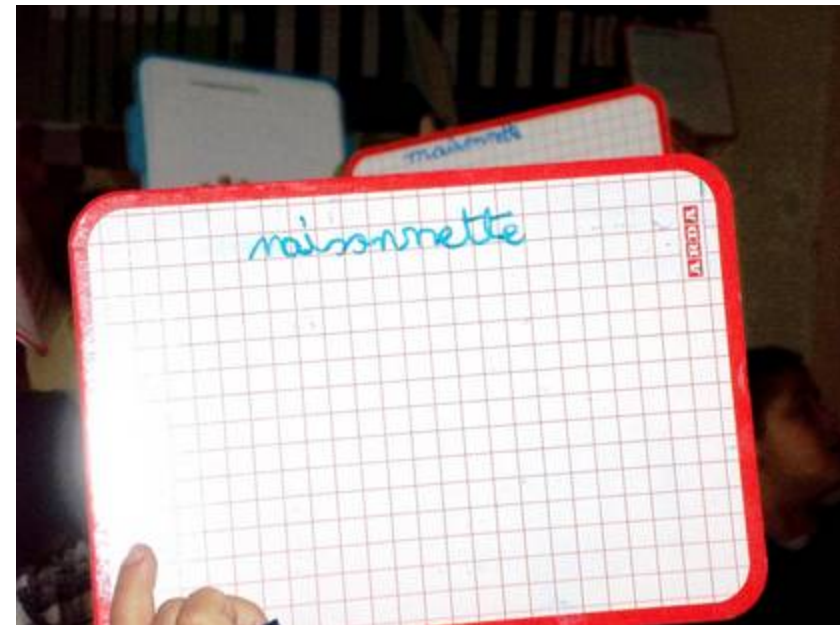 maisonnette
naisonnette
ARDA